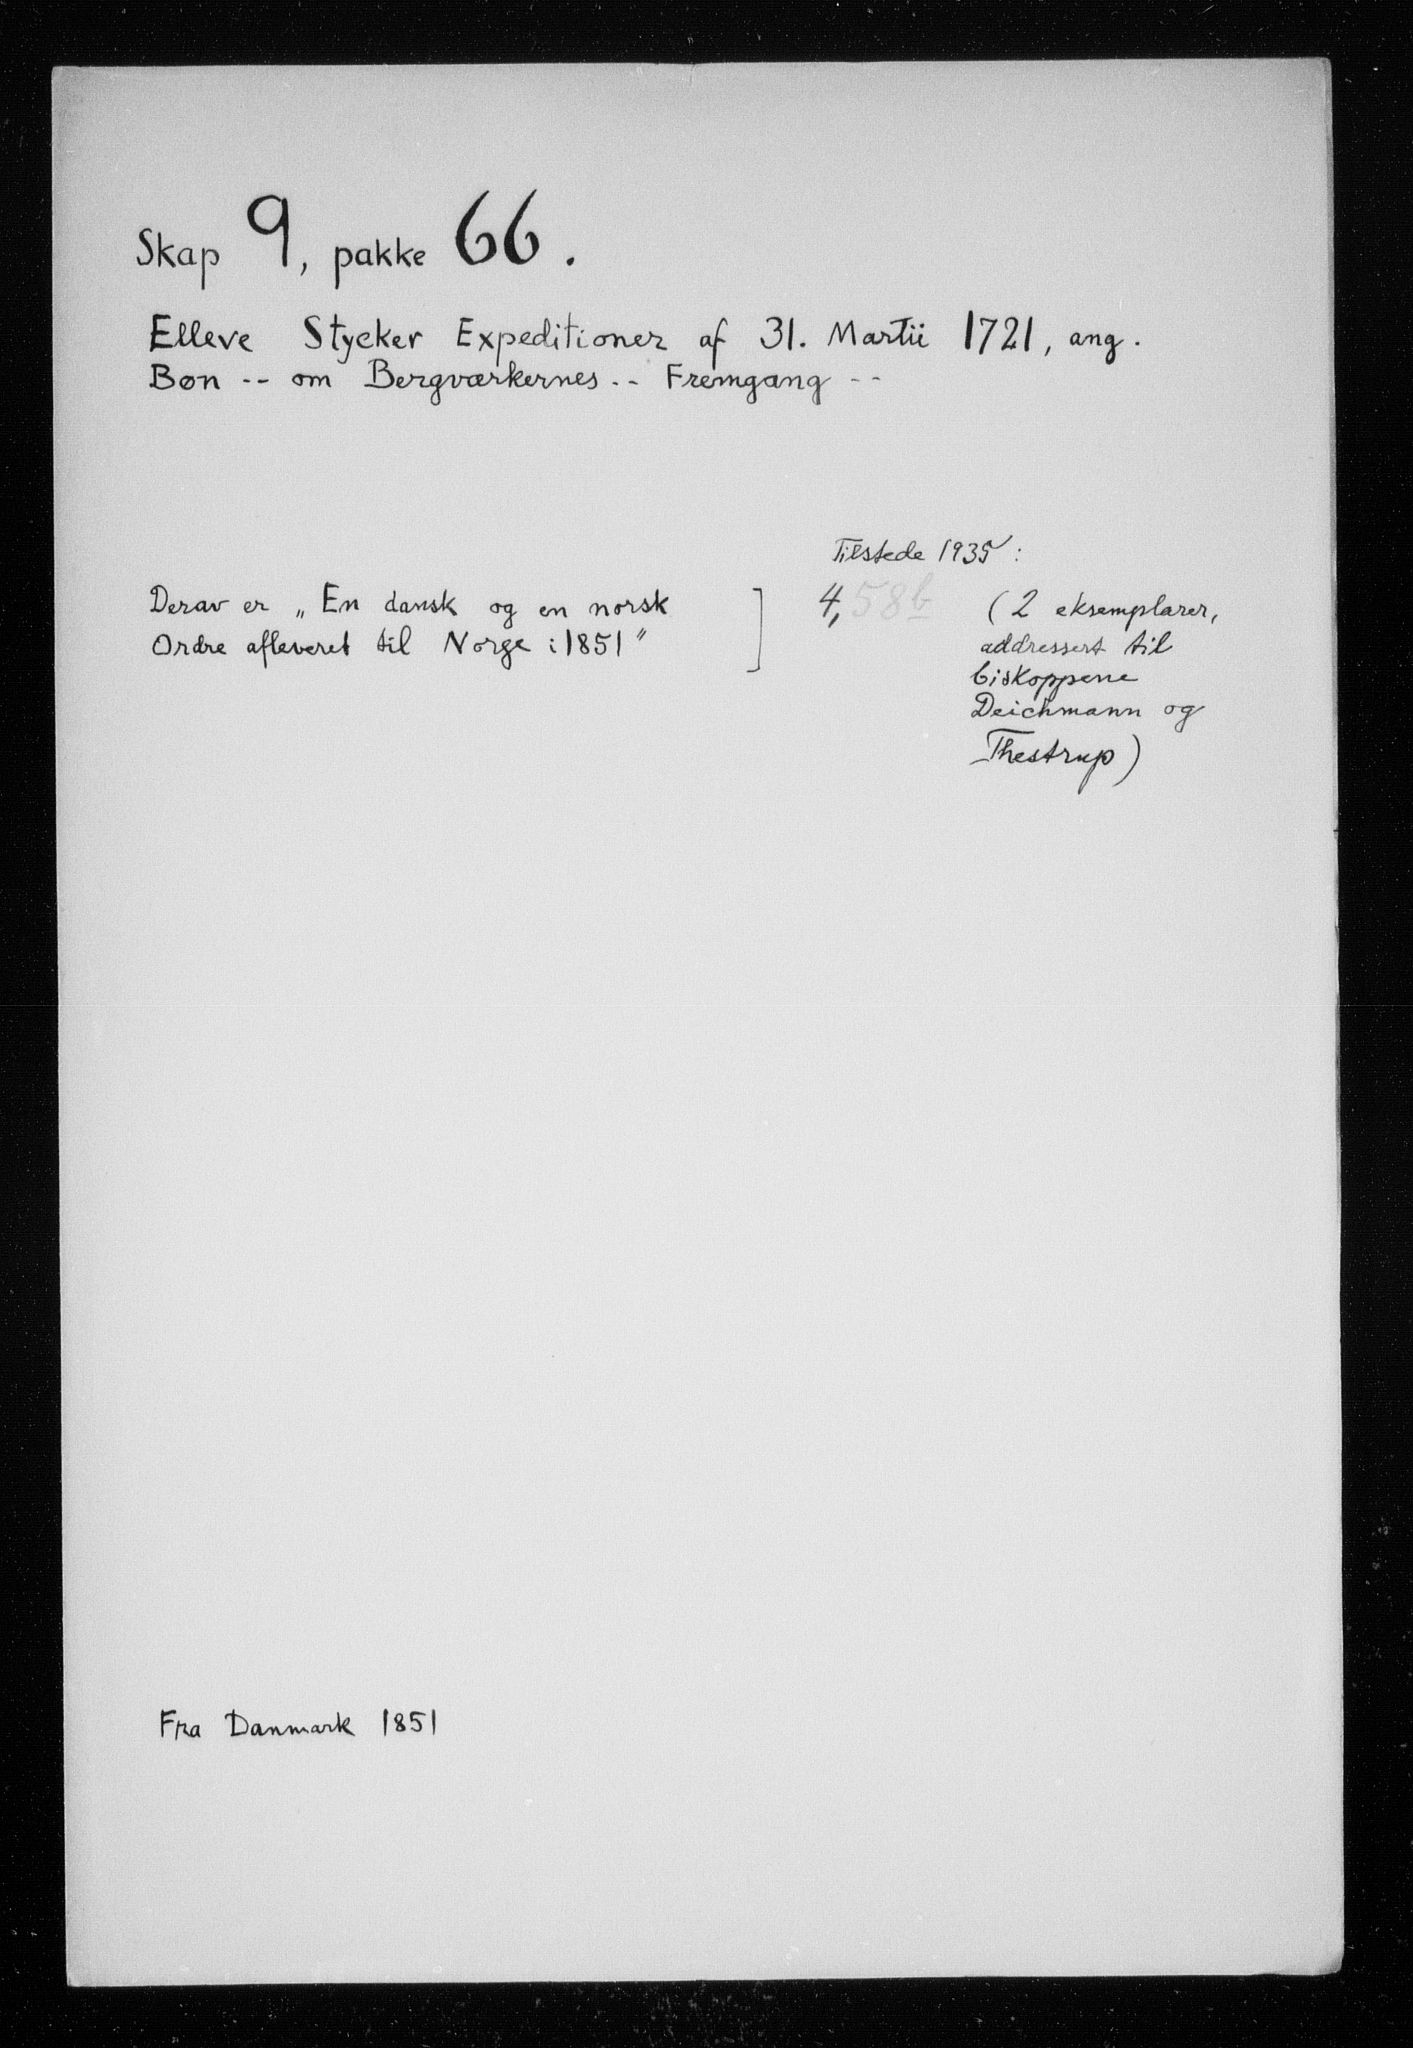 Skap 9, pakke 66.
Elleve Stycker Expeditioner af 31. Martii 1721, ang.
Bøn -- om Bergværkernes -- Fremgang --
Tilstede 1935:
Derav er „En dansk og en norsk
Ordre afleveret til Norge i 1851"
4, 58b
(2 eksemplarer,
addressert til
biskoppene
Deichmann og
Thestrup)
Fra Danmark 1851